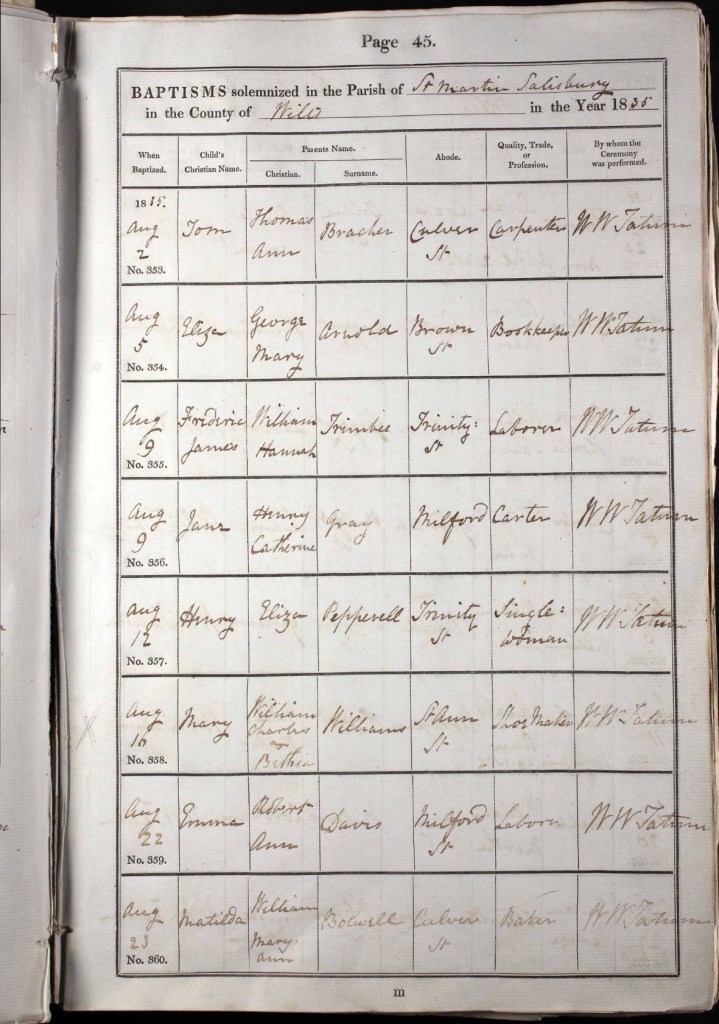 Page 45.
BAPTISMS solemnized in the Parish of St Martin Salisbury
in the County of Wilts in the Year 1835
When Baptized.
Child's Christian Name.
Parents Name.
Christian.
Surname.
Abode.
Quality, Trade, or Profession.
By whom the Ceremony was performed.
1835.
Aug 2 No. 353.
Tom
Thomas
Ann
Bracher
Culver St
Carpenter
W W Tatum
Aug 5 No. 354.
Eliza
George
Mary
Arnold
Brown St
Bookkeeper
W W Tatum
Aug 9 No. 355.
Frederic James
William
Hannah
Trimbee
Trinity: St
Laborer
W W Tatum
Aug 9 No. 356.
Jane
Henry
Catherine
Gray
Milford
Carter
W W Tatum
Aug 12 No. 357.
Henry
Eliza
Pepperell
Trinity St
Single: woman
W W Tatum
Aug 16 No. 358.
Mary
William Charles
Bethia
Williams
St Ann St
Shoe Maker
W W Tatum
Aug 22 No. 359.
Emma
Robert
Ann
Davis
Milford St
Laborer
W W Tatum
Aug 23 No. 360.
Matilda
William
Mary: Ann
Bolwell
Culver St
Baker
W W Tatum
m